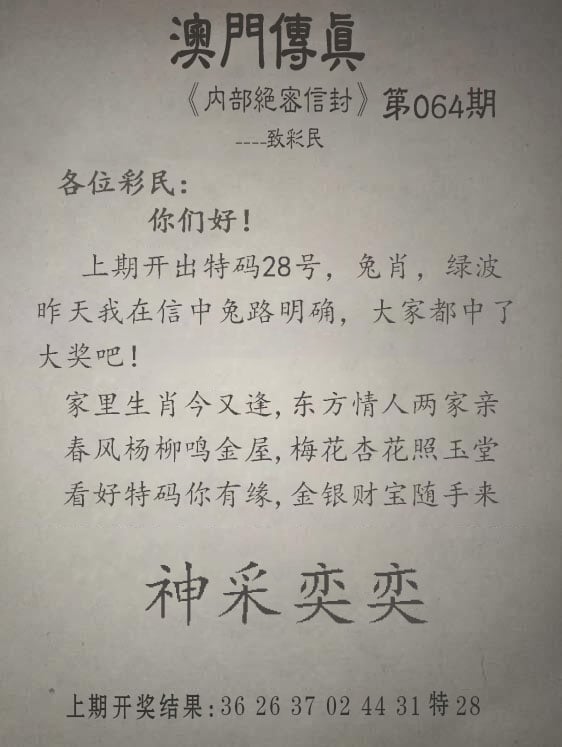 澳門傳真
《内部絕密信封》第064期
----致彩民
各位彩民：
你们好！
上期开出特码28号，兔肖，绿波
昨天我在信中兔路明确，大家都中了
大奖吧！
家里生肖今又逢,东方情人两家亲
春风杨柳鸣金屋,梅花杏花照玉堂
看好特码你有缘,金银财宝随手来
神采奕奕
上期开奖结果:36 26 37 02 44 31特28